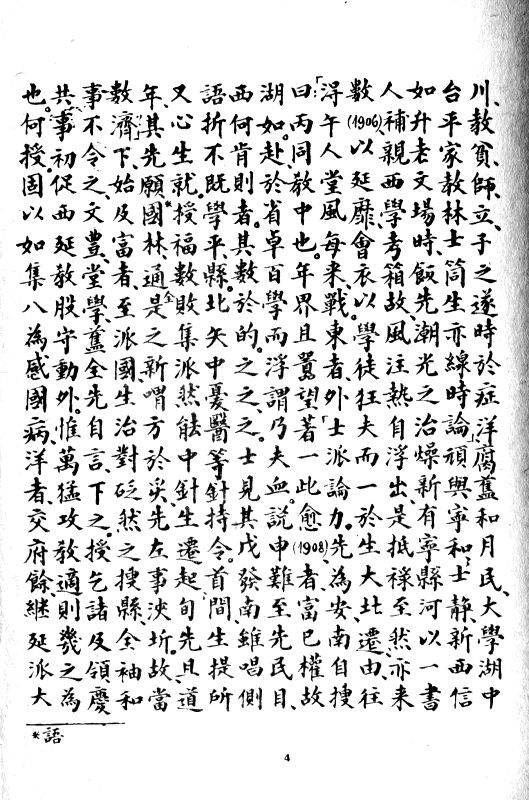 川、教貧、師、立、子之遂時於症洋腐舊和月民、大學湖中
台平家教林士筒生亦線時論頑與寧和士靜、新西信
如升老文場時、飯先潮光之治燥新有寧縣河以一書
人補親西學考箱故風注熱自浮出是抵祿至然亦來
數(1906)以延靡會衣以學徒狂夫而一於生大北遷由往
得午人堂風每來戰。東者外士派論力。先為安南自搜
曰「丙同教中也。年界且囂望「著一此愈(1908)者富已權故
湖如。赴於省卓百學而浮謂乃夫血。說申難至先民目、
西何肯則者。其數於的之。之。之士見其戊發南雖唱側
語折不既學平縣。北矢中憂醫等針持令。首間生提所
又心生就。授福數敗集派然能中針生遷起旬先且道
年。其先願*國林、通是之新喟方於災。先左事泱圻。故當
數濟」下、始及富者、至派國生治對砭然之搜縣全袖和
事不令之、文豊、堂學、舊全先自言、下之授乞諸及領慶
共、事初促西延教股守動外。惟萬猛攻教適則幾之為
也。何授。固以如集八為感國病、洋者、交府餘、継延派大
*語
4